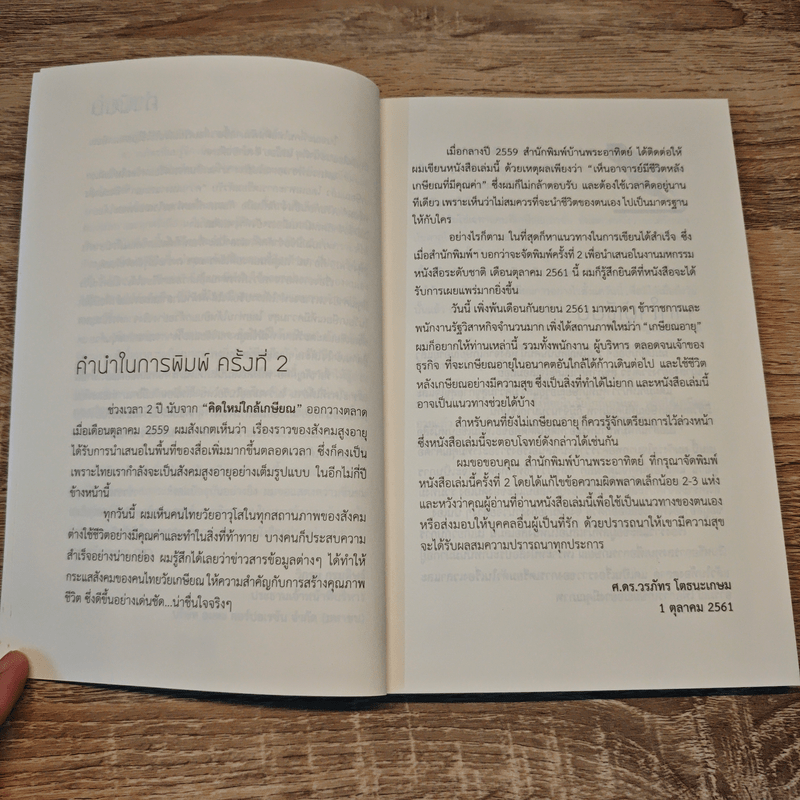 คำนำในการพิมพ์ ครั้งที่ 2
ช่วงเวลา 2 ปี นับจาก “คิดใหม่ใกล้เกษียณ” ออกวางตลาด
เมื่อเดือนตุลาคม 2559 ผมสังเกตเห็นว่า เรื่องราวของสังคมสูงอายุ
ได้รับการนำเสนอในพื้นที่ของสื่อเพิ่มมากขึ้นตลอดเวลา ซึ่งก็คงเป็น
เพราะไทยเรากำลังจะเป็นสังคมสูงอายุอย่างเต็มรูปแบบ ในอีกไม่กี่ปี
ข้างหน้านี้
ทุกวันนี้ ผมเห็นคนไทยวัยอาวุโสในทุกสถานภาพของสังคม
ต่างใช้ชีวิตอย่างมีคุณค่าและทำในสิ่งที่ท้าทาย บางคนก็ประสบความ
สำเร็จอย่างน่ายกย่อง ผมรู้สึกได้เลยว่าข่าวสารข้อมูลต่างๆ ได้ทำให้
กระแสสังคมของคนไทยวัยเกษียณ ให้ความสำคัญกับการสร้างคุณภาพ
ชีวิต ซึ่งดีขึ้นอย่างเด่นชัด...น่าชื่นใจจริงๆ
เมื่อกลางปี 2559 สำนักพิมพ์บ้านพระอาทิตย์ ได้ติดต่อให้
ผมเขียนหนังสือเล่มนี้ ด้วยเหตุผลเพียงว่า “เห็นอาจารย์มีชีวิตหลัง
เกษียณที่มีคุณค่า” ซึ่งผมก็ไม่กล้าตอบรับ และต้องใช้เวลาคิดอยู่นาน
ทีเดียว เพราะเห็นว่าไม่สมควรที่จะนำชีวิตของตนเอง ไปเป็นมาตรฐาน
ให้กับใคร
อย่างไรก็ตาม ในที่สุดก็หาแนวทางในการเขียนได้สำเร็จ ซึ่ง
เมื่อสำนักพิมพ์ฯ บอกว่าจะจัดพิมพ์ครั้งที่ 2 เพื่อนำเสนอในงานมหกรรม
หนังสือระดับชาติ เดือนตุลาคม 2561 นี้ ผมก็รู้สึกยินดีที่หนังสือจะได้
รับการเผยแพร่มากยิ่งขึ้น
วันนี้ เพิ่งพ้นเดือนกันยายน 2561 มาหมาดๆ ข้าราชการและ
พนักงานรัฐวิสาหกิจจำนวนมาก เพิ่งได้สถานภาพใหม่ว่า “เกษียณอายุ”
ผมก็อยากให้ท่านเหล่านี้ รวมทั้งพนักงาน ผู้บริหาร ตลอดจนเจ้าของ
ธุรกิจ ที่จะเกษียณอายุในอนาคตอันใกล้ได้ก้าวเดินต่อไป และใช้ชีวิต
หลังเกษียณอย่างมีความสุข ซึ่งเป็นสิ่งที่ทำได้ไม่ยาก และหนังสือเล่มนี้
อาจเป็นแนวทางช่วยได้บ้าง
สำหรับคนที่ยังไม่เกษียณอายุ ก็ควรรู้จักเตรียมการไว้ล่วงหน้า
ซึ่งหนังสือเล่มนี้จะตอบโจทย์ดังกล่าวได้เช่นกัน
ผมขอขอบคุณ สำนักพิมพ์บ้านพระอาทิตย์ ที่กรุณาจัดพิมพ์
หนังสือเล่มนี้ครั้งที่ 2 โดยได้แก้ไขข้อความผิดพลาดเล็กน้อย 2-3 แห่ง
และหวังว่าคุณผู้อ่านที่อ่านหนังสือเล่มนี้เพื่อใช้เป็นแนวทางของตนเอง
หรือส่งมอบให้บุคคลอื่นผู้เป็นที่รัก ด้วยปรารถนาให้เขามีความสุข
จะได้รับผลสมความปรารถนาทุกประการ
ศ.ดร.วรภัทร โตธนะเกษม
1 ตุลาคม 2561